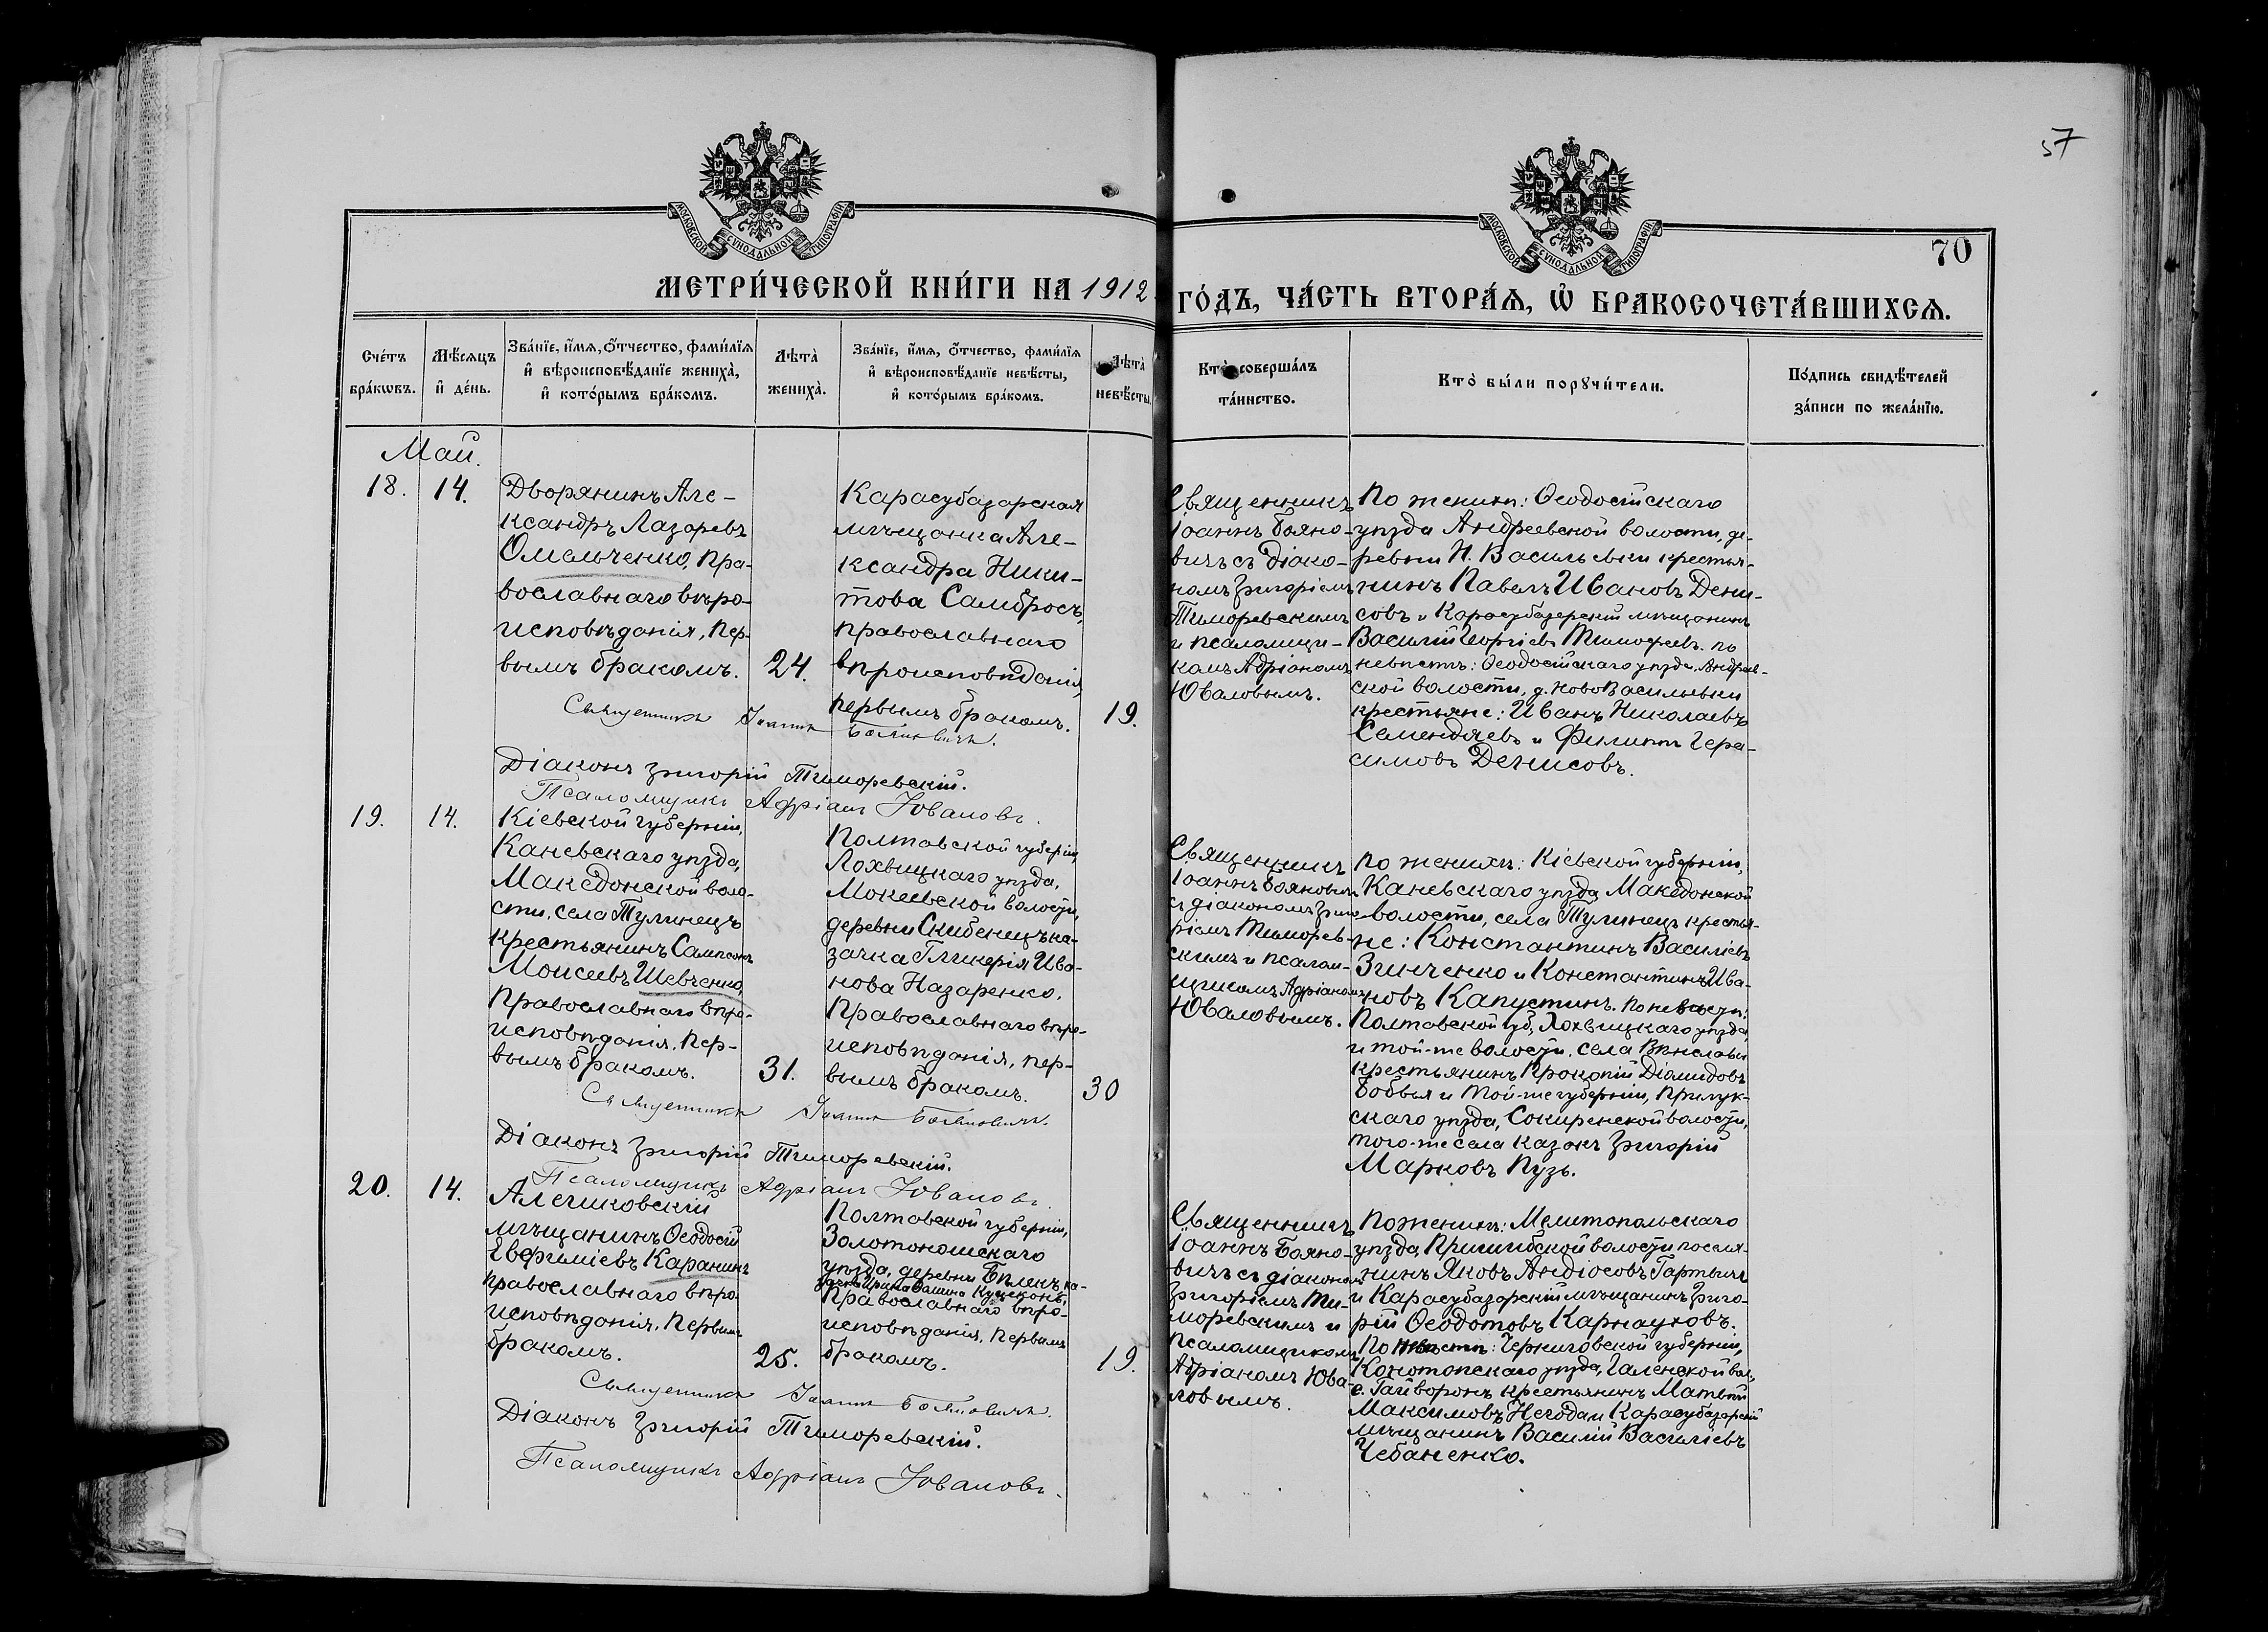 57
70
МОСКОВСКОЙ СѴНОДАЛЬНОЙ ТИПОГРАФІИ
МОСКОВСКОЙ СѴНОДАЛЬНОЙ ТИПОГРАФІИ
МЕТРИ́ЧЕСКОЙ КНИ́ГИ НА 1912
ГО́ДЪ, ЧА́СТЬ ВТОРА́Ѧ, Ѽ БРАКОСОЧЕТА́ВШИХСѦ.
Сче́тъ
бра́кωвъ.
Мѣ́сяцъ
и҆ де́нь.
Зва́нїе, и҆́мя, ѻ҆́тчество, фами́лїя
и҆ вѣроисповѣ́данїе жениха̀,
и҆ кото́рымъ бра́комъ.
Лѣта̀
жениха̀.
Зва́нїе, и҆́мя, ѻ҆́тчество, фами́лїя
и҆ вѣроисповѣ́данїе невѣ́сты,
и҆ кото́рымъ бра́комъ.
Лѣта̀
невѣ́сты.
Кто̀ соверша́лъ
та́инство.
Кто̀ бы́ли порꙋчи́тели.
По́дпись свидѣ́телей
за́писи по жела́нїю.
Май.
18.
14.
Дворянинъ Але-
ксандръ Лазаревъ
Омельченко, пра-
вославнаго вѣро-
исповѣданія, пер-
вымъ бракомъ.
24.
Карасубазарская
мѣщанка Але-
ксандра Ники-
това Самбросъ,
православнаго
вѣроисповѣданія,
первымъ бракомъ.
19.
Священникъ
Іоаннъ Бояно-
вичъ съ діако-
номъ Григоріемъ
Тиморевскимъ
и псаломщи-
комъ Адріаномъ
Юваловымъ.
По женихѣ: Ѳеодосійскаго
уѣзда Андреевской волости, де-
ревни Н. Васильевки крестья-
нинъ Павелъ Ивановъ Дени-
совъ и Карасубазарскій мѣщанинъ
Василій Георгіевъ Тимофеевъ. по
невѣстѣ: Ѳеодосійскаго уѣзда, Андреев-
ской волости, д. НовоВасильевки
крестьяне: Иванъ Николаевъ
Семендяевъ и Филиппъ Гера-
симовъ Денисовъ.
Священникъ Іоаннъ Бояновичъ.
Діаконъ Григорій Тиморевскій.
Псаломщикъ Адріанъ Юваловъ.
19.
14.
Кіевской губерніи,
Каневскаго уѣзда,
Македонской воло-
сти, села Тулинецъ
крестьянинъ Сампсонъ
Моисеевъ Шевченко,
православнаго вѣро-
исповѣданія, пер-
вымъ бракомъ.
31.
Полтавской губерніи,
Лохвицкаго уѣзда,
Мокеевской волости,
деревни Скибенецъ ка-
зачка Гликерія Ива-
нова Назаренко,
православнаго вѣро-
исповѣданія, пер-
вымъ бракомъ.
30
Священникъ
Іоаннъ Бояновичъ
съ діакономъ Григо-
ріемъ Тиморев-
скимъ и псалом-
щикомъ Адріаномъ
Юваловымъ.
По женихѣ: Кіевской губерніи,
Каневскаго уѣзда Македонской
волости, села Тулинецъ крестья-
не: Константинъ Василіевъ
Зинченко и Константинъ Ива-
новъ Капустинъ. По невѣстѣ:
Полтавской губ, Лохвицкаго уѣзда,
и той-же волости, села
крестьянинъ Прокопій Діомидовъ
Бобвья и той-же губерніи, Прилук-
скаго уѣзда, Сокиренской волости,
того-же села казакъ Григорій
Марковъ Пузь.
Священникъ Іоаннъ Бояновичъ.
Діаконъ Григорій Тиморевскій.
Псаломщикъ Адріанъ Юваловъ.
20.
14.
Алешковскій
мѣщанинъ Ѳеодосій
Евфиміевъ Каранинъ
православнаго вѣро-
исповѣданія, первымъ
бракомъ.
25.
Полтавской губерніи,
Золотоношскаго
уѣзда, деревни Бѣлекъ ка-
зачка Ирина
православнаго вѣро-
исповѣданія, первымъ
бракомъ.
19.
Священникъ
Іоаннъ Бояно-
вичъ съ діакономъ
Григоріемъ Ти-
моревскимъ и
псаломщикомъ
Адріаномъ Юва-
ловымъ.
По женихѣ: Мелитопольскаго
уѣзда, Пришибской волости поселя-
нинъ Яковъ
и Карасубазарскій мѣщанинъ Григо-
рій Ѳеодотовъ Карнауховъ.
По невѣстѣ: Черниговской губерніи,
Конотопскаго уѣзда, вол.,
с. Гайворонъ крестьянинъ Матвей
Максимовъ Негода и Карасубазарскій
мѣщанинъ Василій Василіевъ
Чебаненко.
Священникъ Іоаннъ Бояновичъ.
Діаконъ Григорій Тиморевскій.
Псаломщикъ Адріанъ Юваловъ.